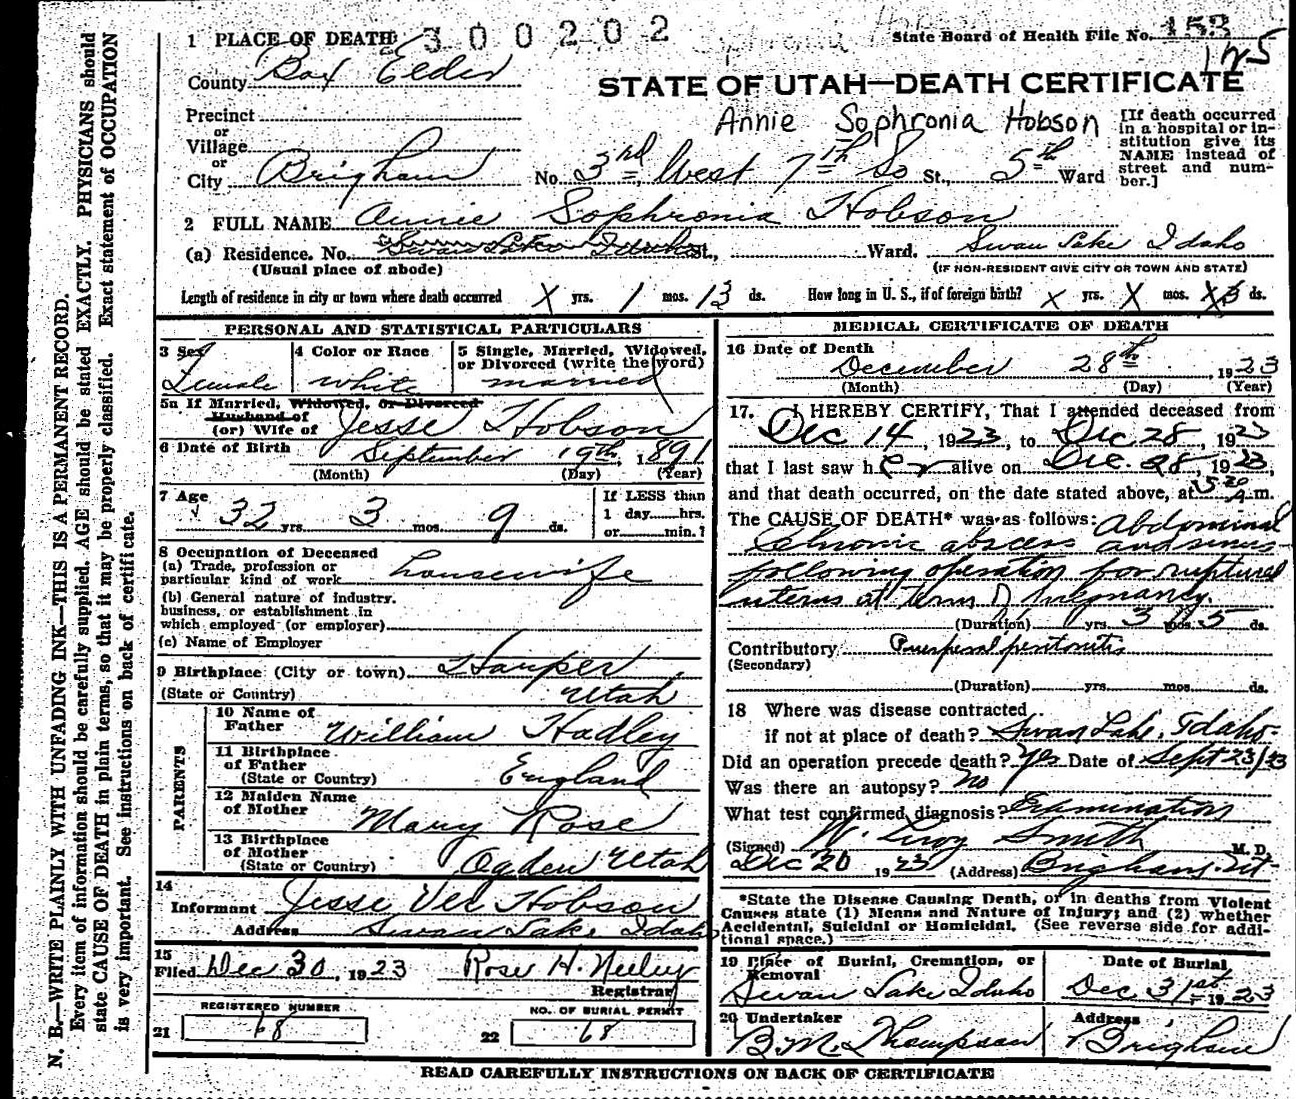 1 PLACE OF DEATH 300202 State Board of Health File No. 153
County Box Elder
125
STATE OF UTAH—DEATH CERTIFICATE
Precinct
or
Village
or
City Brigham
Annie Sophronia Hobson
No. 3rd West 7th So St., 5th Ward
[If death occurred
in a hospital or in-
stitution give its
NAME instead of
street and num-
ber.]
2 FULL NAME Annie Sophronia Hobson
(a) Residence. No. Swan Lake Idaho St., Ward. Swan Lake Idaho
(Usual place of abode) (IF NON-RESIDENT GIVE CITY OR TOWN AND STATE)
Length of residence in city or town where death occurred X yrs. 1 mos. 13 ds. How long in U. S., if of foreign birth? X yrs. X mos. ds.
PERSONAL AND STATISTICAL PARTICULARS
3 Sex
Female
4 Color or Race
white
5 Single, Married, Widowed,
or Divorced (write the word)
married
5a If Married, Widowed, or Divorced
Husband of
(or) Wife of Jesse Hobson
6 Date of Birth September 19th, 1891
(Month) (Day) (Year)
7 Age
32 yrs. 3 mos. 9 ds.
If LESS than
1 day hrs.
or min.?
8 Occupation of Deceased
(a) Trade, profession or
particular kind of work housewife
(b) General nature of industry,
business, or establishment in
which employed (or employer)
(c) Name of Employer
9 Birthplace (City or town) Harper
(State or Country) Utah
PARENTS
10 Name of
Father William Hadley
11 Birthplace
of Father
(State or Country) England
12 Maiden Name
of Mother Mary Rose
13 Birthplace
of Mother
(State or Country) Ogden Utah
14
Informant Jesse Vel Hobson
Address Swan Lake Idaho
15
Filed Dec 30, 1923 Rose H. Neeley
Registrar
REGISTERED NUMBER
21 68
NO. OF BURIAL PERMIT
22 68
MEDICAL CERTIFICATE OF DEATH
16 Date of Death
December 28th, 1923
(Month) (Day) (Year)
17. I HEREBY CERTIFY, That I attended deceased from
Dec 14, 1923, to Dec 28, 1923
that I last saw her alive on Dec. 28, 1923,
and that death occurred, on the date stated above, at 5 20 A.m.
The CAUSE OF DEATH* was as follows: Abdominal
Chronic abscess and sinus
following operation for ruptured
uterus at term of pregnancy.
(Duration) yrs. 3 mos. 5 ds.
Contributory Puerperal peritonitis
(Secondary)
(Duration) yrs. mos. ds.
18 Where was disease contracted
if not at place of death? Swan Lake, Idaho
Did an operation precede death? Yes Date of Sept 23/23
Was there an autopsy? no
What test confirmed diagnosis? Examination
(Signed) W. Leroy Smith M. D.
Dec 20 1923 (Address) Brigham, Ut
*State the Disease Causing Death, or in deaths from Violent
Causes state (1) Means and Nature of Injury; and (2) whether
Accidental, Suicidal or Homicidal. (See reverse side for addi-
tional space.)
19 Place of Burial, Cremation, or
Removal
Swan Lake Idaho
Date of Burial
Dec 31st 1923
20 Undertaker
B. M. Thompson
Address
Brigham
READ CAREFULLY INSTRUCTIONS ON BACK OF CERTIFICATE
N. B.—WRITE PLAINLY WITH UNFADING INK—THIS IS A PERMANENT RECORD.
Every item of information should be carefully supplied. AGE should be stated EXACTLY. PHYSICIANS should
state CAUSE OF DEATH in plain terms, so that it may be properly classified. Exact statement of OCCUPATION
is very important. See instructions on back of certificate.